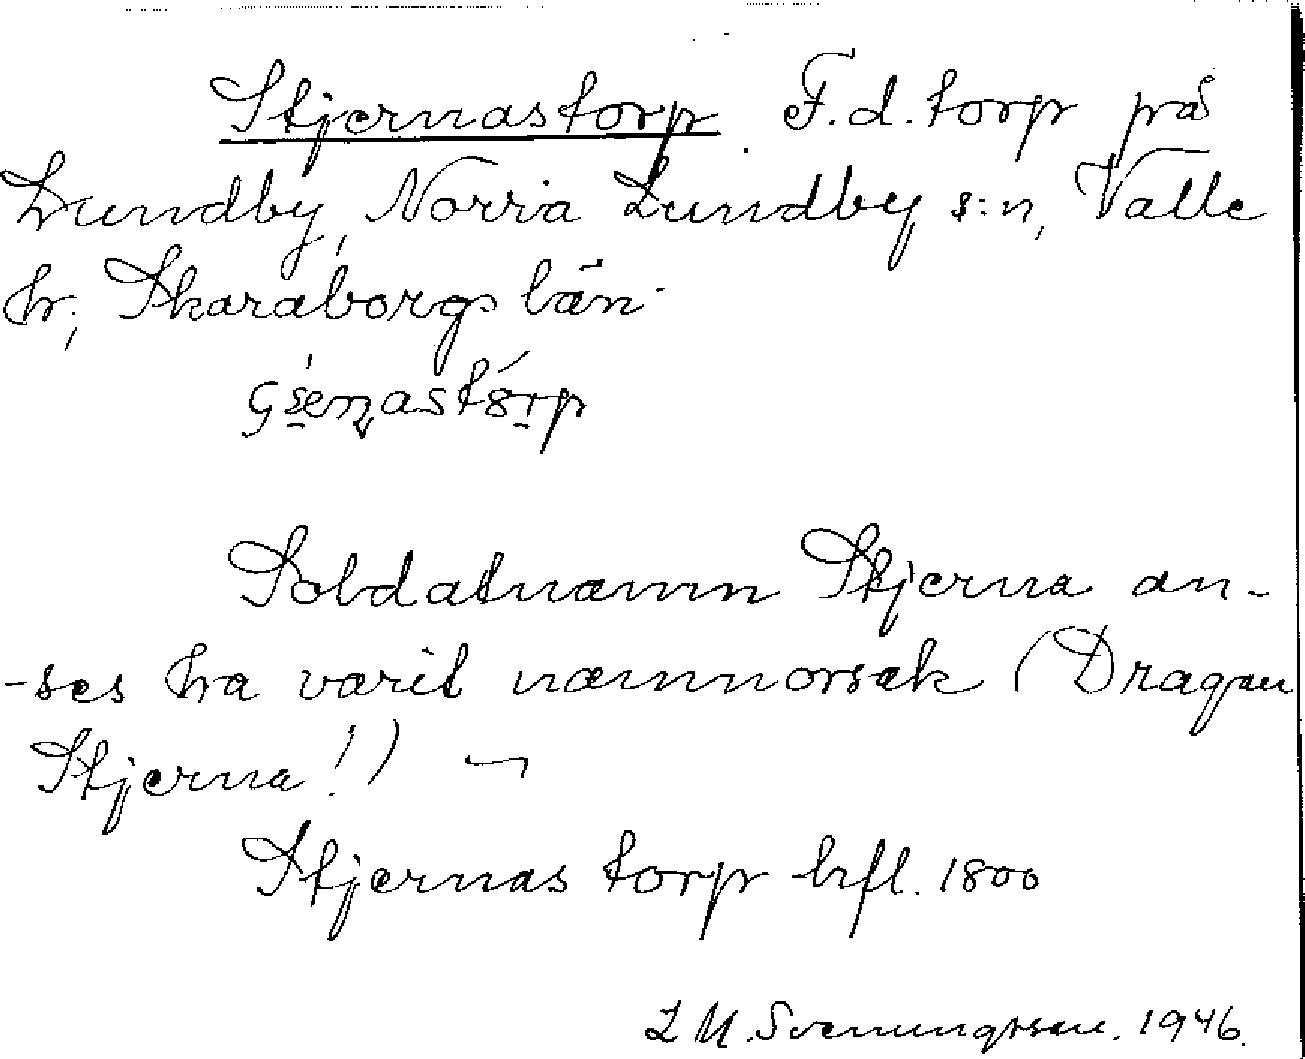 Stjernastorp F.d. torp på
Lundby, Norra Lundby s:n, Valle
hr, Skaraborgs län.
Soldatnamn Stjerna an-
-ses ha varit namnorsak (Dragon
Stjerna!) ¬
Stjernas torp hfl. 1800
L M. Svenungsson. 1946.